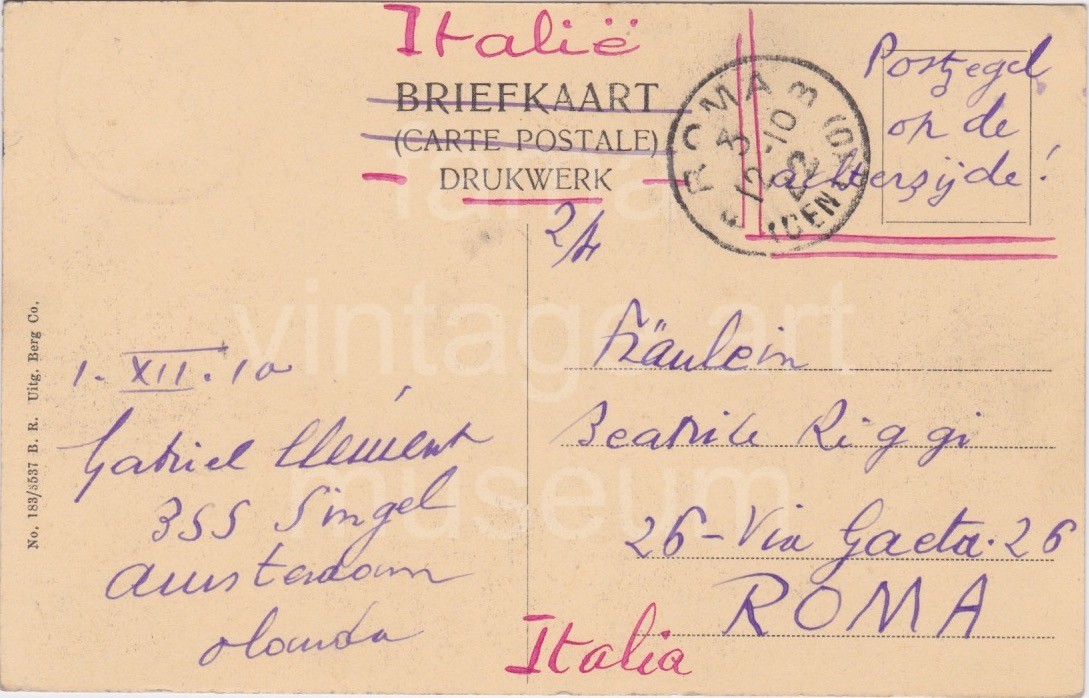 Italië
BRIEFKAART
(CARTE POSTALE)
DRUKWERK
ROMA
3
12-10
Postzegel
op de
achterzijde!
2/4
No. 183/8537 B. R. Uitg. Berg Co.
1. XII. 10
Gabriel Clément
355 Singel
Amsterdam
Olanda
Fräulein
Beatrice Riggi
26 - Via Gaeta. 26
ROMA
Italia
vintage art
museum